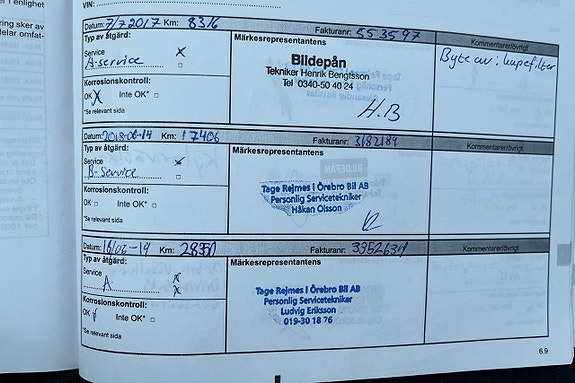 er i enlighet
ring sker av
delar omfat-
VIN:
Datum: 7/7 2017 Km: 8316 Fakturanr: 553597
Typ av åtgärd: Märkesrepresentantens Kommentarer/övrigt
Service X
A-service
Byte av: kupefilter
Bildepån
Tekniker Henrik Bengtsson
Tel 0340-50 40 24
H.B
Korrosionskontroll:
OK X Inte OK*
*Se relevant sida
Datum: 2018-06-14 Km: 17406 Fakturanr: 3182189 Kommentarer/övrigt
Typ av åtgärd: Märkesrepresentantens
Service
B-service
Tage Rejmes i Örebro Bil AB
Personlig Servicetekniker
Håkan Olsson
Korrosionskontroll:
OK Inte OK*
*Se relevant sida
Datum: Km: Fakturanr: Kommentarer/övrigt
Typ av åtgärd: Märkesrepresentantens
Service X
A X
Tage Rejmes i Örebro Bil AB
Personlig Servicetekniker
Ludvig Eriksson
019-30 18 76
Korrosionskontroll:
OK Inte OK*
*Se relevant sida
6.9